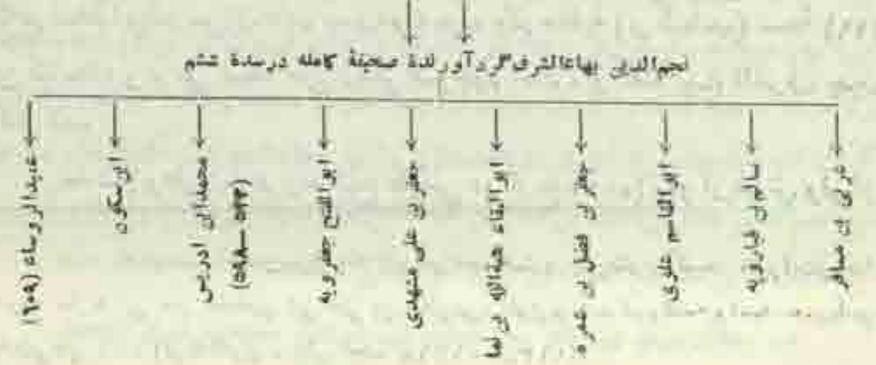 نجم‌الدین بهاءالشرف گردآورندة صحیفۀ کامله درسدة ششم
عربی بن مسافر
سالم بن قبارویه
ابوالقاسم علوی
جعفر بن فضل بن عمره
ابوالبقاء هبةالله بن نما
جعفر بن علی مشهدی
ابوالفتح جعفرویه
محمدابن ادریس
(۵۴۳–۵۹۸)
ابن سکون
عمیدالروساء (۶۰۹)